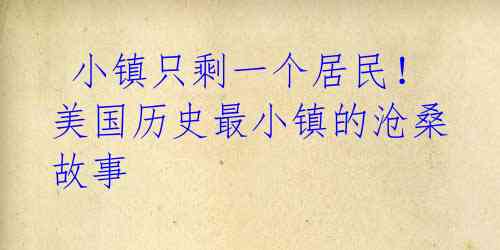 小镇只剩一个居民！
美国历史最小镇的沧桑
故事